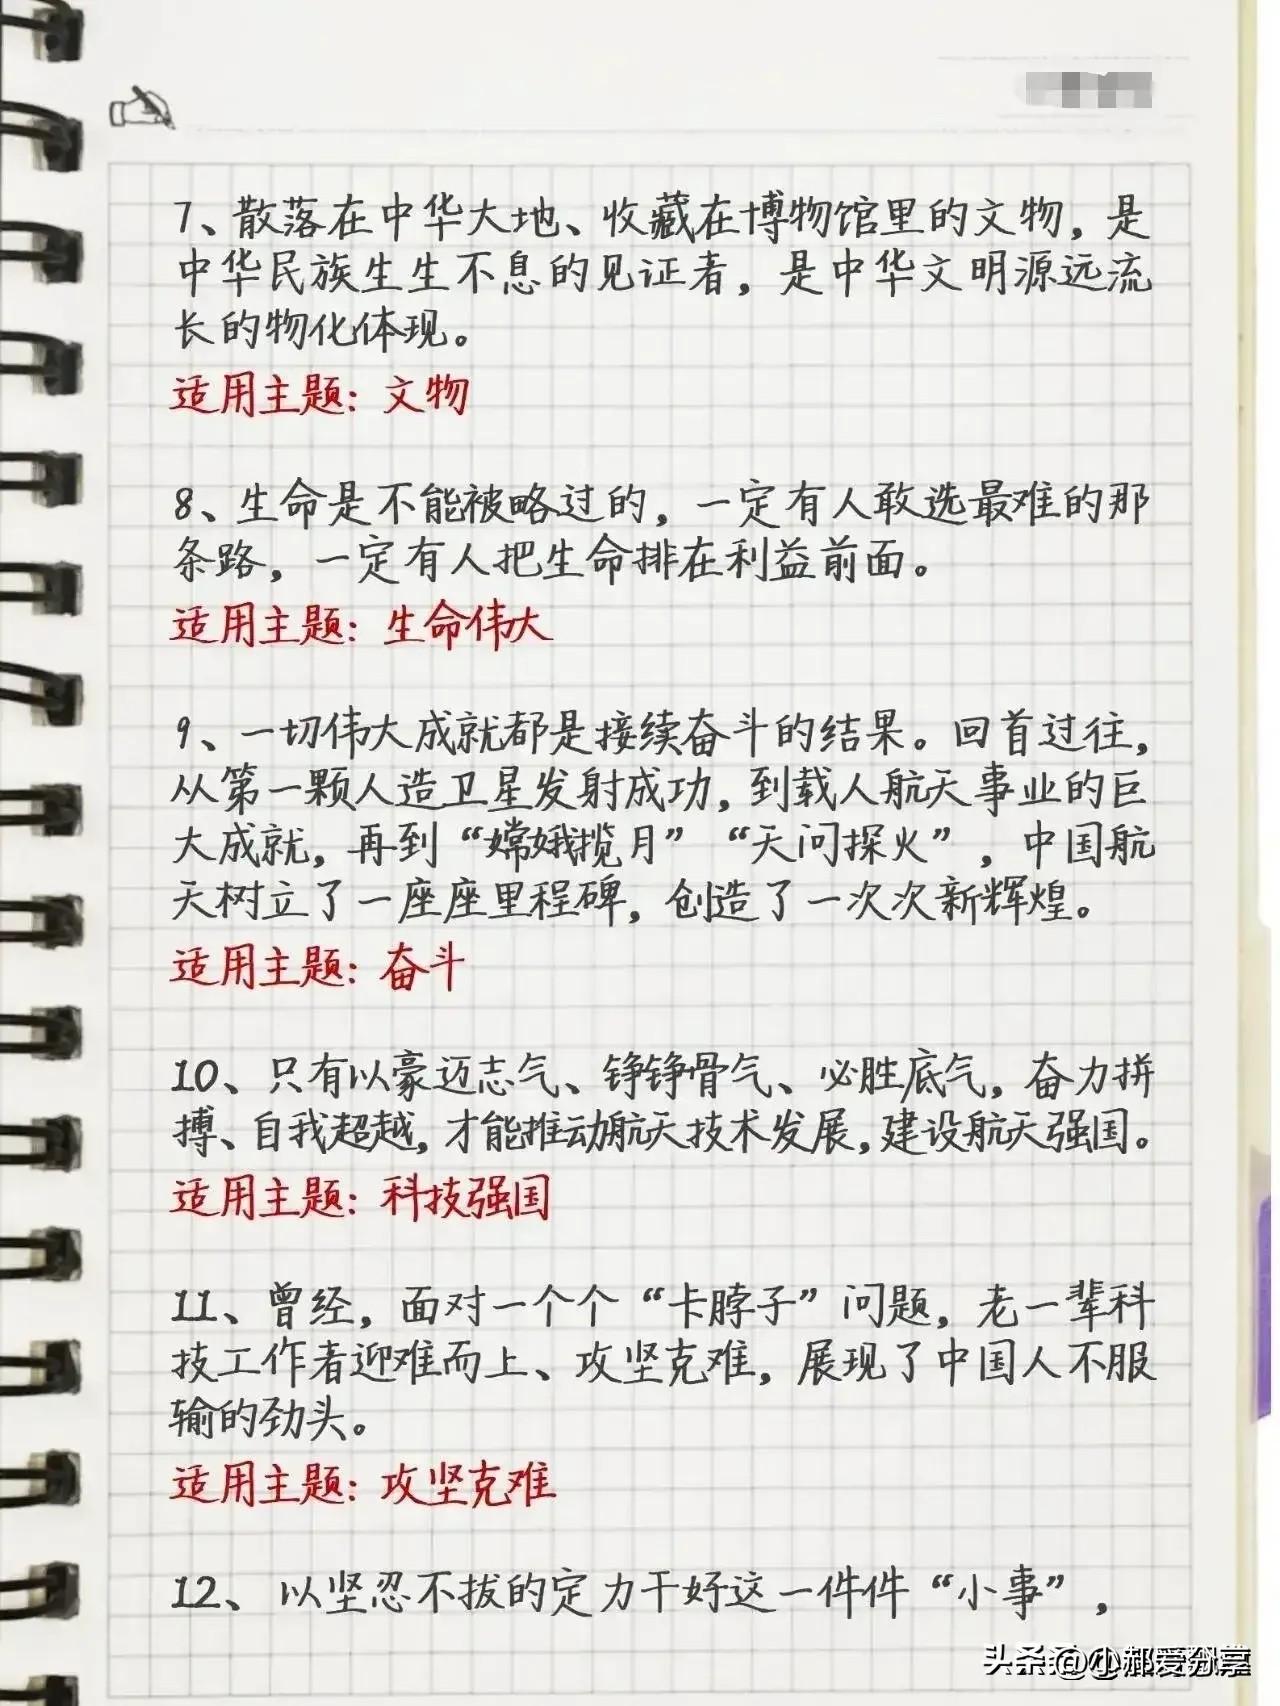 7、散落在中华大地、收藏在博物馆里的文物，是
中华民族生生不息的见证者，是中华文明源远流
长的物化体现。
适用主题：文物
8、生命是不能被略过的，一定有人敢选最难的那
条路，一定有人把生命排在利益前面。
适用主题：生命伟大
9、一切伟大成就都是接续奋斗的结果。回首过往，
从第一颗人造卫星发射成功，到载人航天事业的巨
大成就，再到“嫦娥揽月”“天问探火”，中国航
天树立了一座座里程碑，创造了一次次新辉煌。
适用主题：奋斗
10、只有以豪迈志气、铮铮骨气、必胜底气，奋力拼
搏、自我超越，才能推动航天技术发展，建设航天强国。
适用主题：科技强国
11、曾经，面对一个个“卡脖子”问题，老一辈科
技工作者迎难而上、攻坚克难，展现了中国人不服
输的劲头。
适用主题：攻坚克难
12、以坚忍不拔的定力干好这一件件“小事”，
头条@小郝爱分享